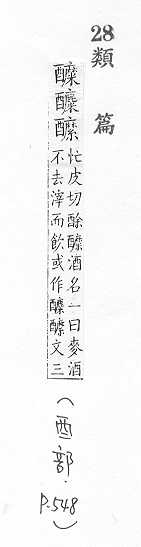 28
類篇
醾醿䤍
忙皮切酴醾酒名一曰麥酒
不去滓而飲或作醿䤍文三
(酉部.
P.548)